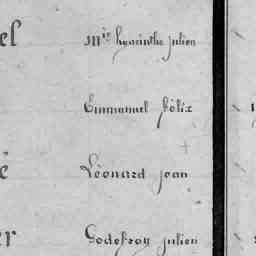 el Mie hyacinthe julien
Emmanuel félix
é Léonard jean
er Godefroy julien